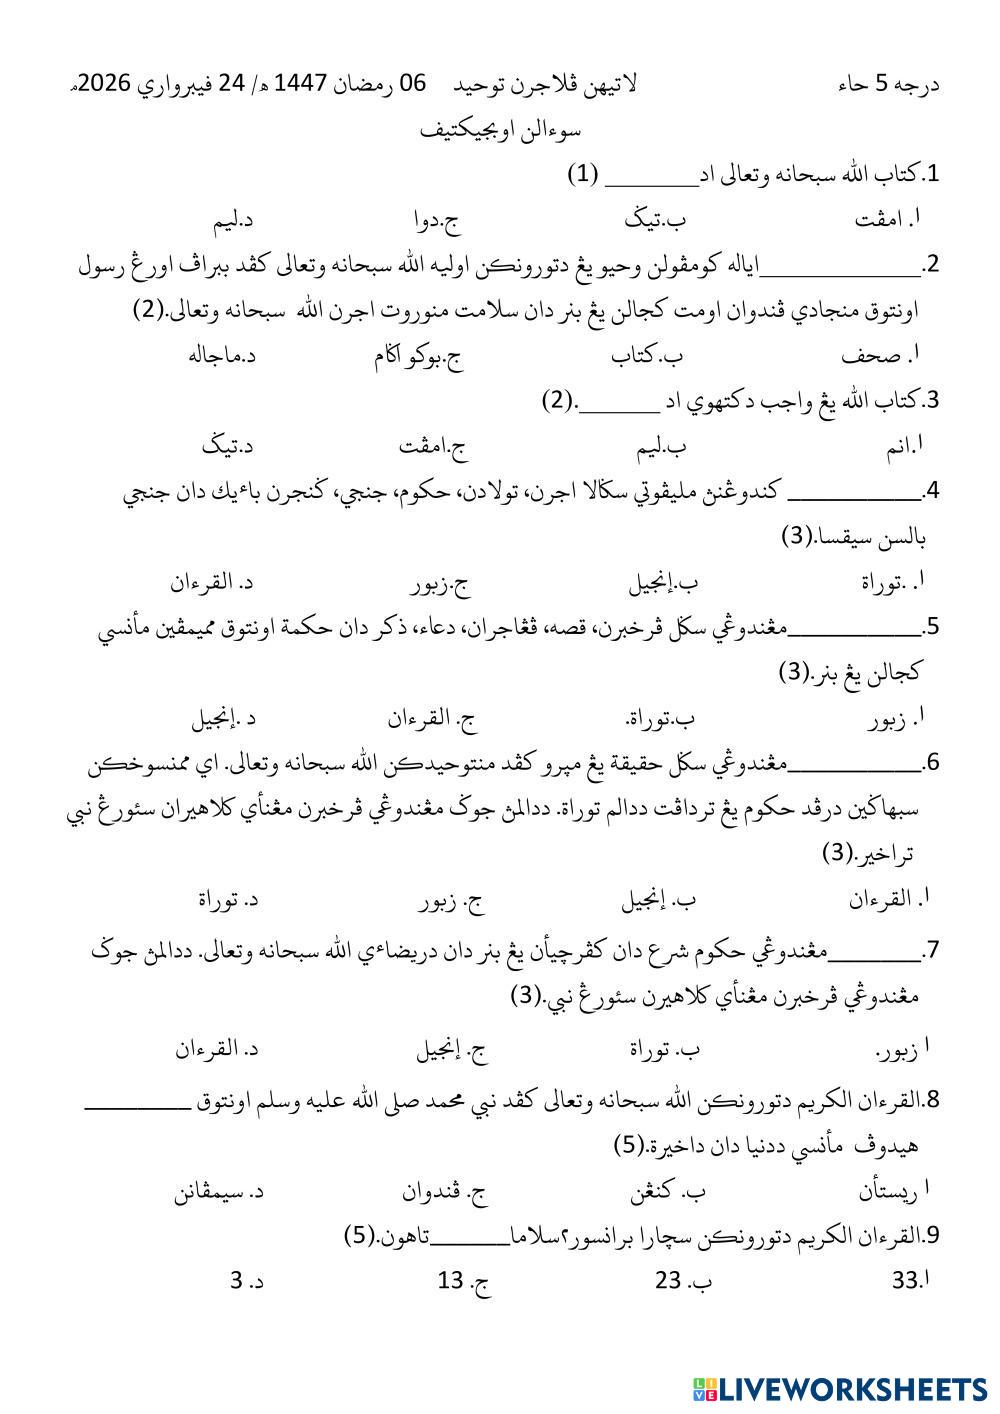 درجه 5 حاء لاتيهن ڤلاجرن توحيد 06 رمضان 1447 ه/ 24 فيبرواري 2026م
سوءالن اوبجيكتيف
1.كتاب الله سبحانه وتعالى اد_______ (1)
ا. امڤت ب.تيݢ ج.دوا د.ليم
2.____________اياله كومڤولن وحيو يڠ دتورونكن اوليه الله سبحانه وتعالى كڤد ببراڤ اورڠ رسول
اونتوق منجادي ڤندوان اومت كجالن يڠ بنر دان سلامت منوروت اجرن الله سبحانه وتعالى.(2)
ا. صحف ب.كتاب ج.بوكو اݢام د.ماجاله
3.كتاب الله يڠ واجب دكتهوي اد ______.(2)
ا.انم ب.ليم ج.امڤت د.تيݢ
4.__________ كندوڠنڽ مليڤوتي سݢالا اجرن، تولادن، حكوم، جنجي، ݢنجرن باءيك دان جنجي
بالسن سيقسا.(3)
ا. .توراة ب.إنجيل ج.زبور د. القرءان
5.__________مڠندوڠي سݢل ڤرخبرن، قصه، ڤڠاجران، دعاء، ذكر دان حكمة اونتوق مميمڤين مأنسي
كجالن يڠ بنر.(3)
ا. زبور ب.توراة. ج. القرءان د .إنجيل
6.__________مڠندوڠي سݢل حقيقة يڠ مڽرو كڤد منتوحيدكن الله سبحانه وتعالى. اي ممنسوخكن
سبهاݢين درڤد حكوم يڠ تردافت ددالم توراة. ددالمڽ جوݢ مڠندوڠي ڤرخبرن مڠنأي كلاهيران سئورڠ نبي
تراخير.(3)
ا. القرءان ب. إنجيل ج. زبور د. توراة
7._______مڠندوڠي حكوم شرع دان كڤرچيأن يڠ بنر دان دريضاءي الله سبحانه وتعالى. ددالمڽ جوݢ
مڠندوڠي ڤرخبرن مڠنأي كلاهيرن سئورڠ نبي.(3)
ا زبور. ب. توراة ج. إنجيل د. القرءان
8.القرءان الكريم دتورونكن الله سبحانه وتعالى كڤد نبي محمد صلى الله عليه وسلم اونتوق ________
هيدوڤ مأنسي ددنيا دان داخيرة.(5)
ا ريستأن ب. كنڠن ج. ڤندوان د. سيمڤانن
9.القرءان الكريم دتورونكن سچارا برانسور٢سلاما______تاهون.(5)
ا.33 ب. 23 ج. 13 د. 3
LIVEWORKSHEETS